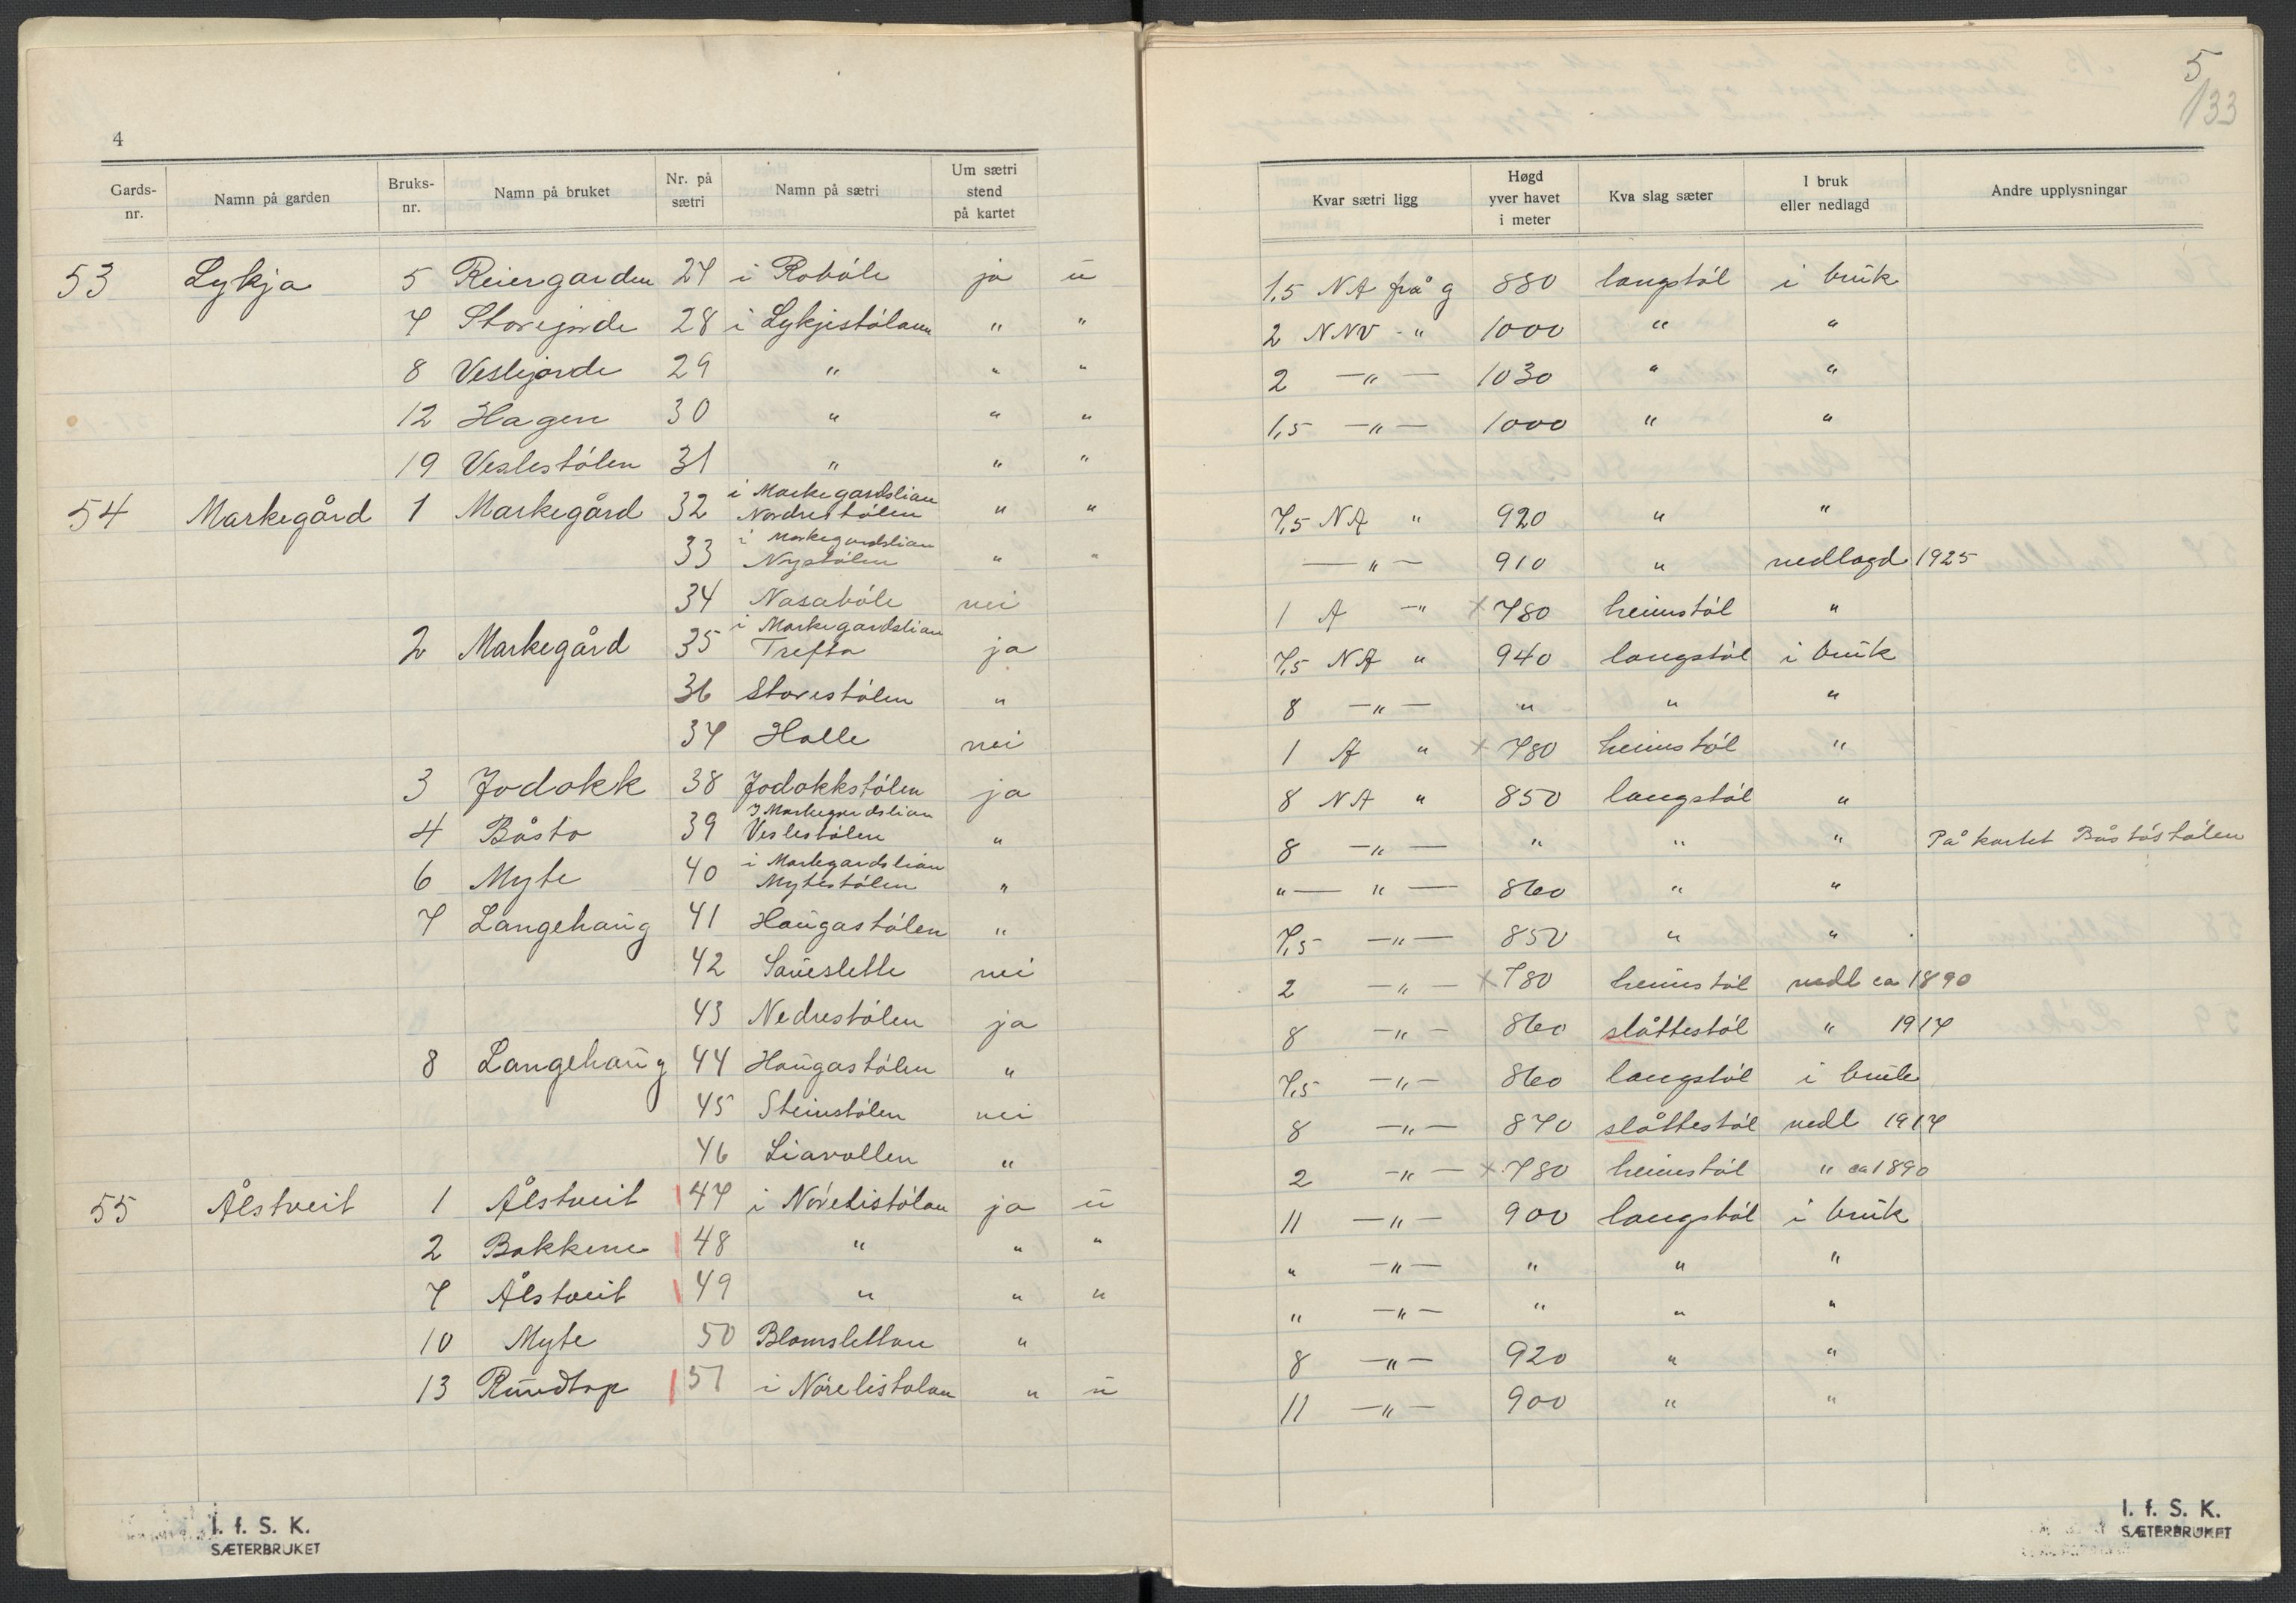 4
Gards-nr. Namn på garden Bruks-nr. Namn på bruket Nr. på sætri Namn på sætri Um sætri stend på kartet
53 Lykja 5 Reiergarden 27 i Robóle ja u
7 Storejorde 28 i Lykjestólann " "
8 Veslejorde 29 " " "
12 Hagen 30 " " "
19 Veslestólen 31 " " "
54 Markegård 1 Markegård 32 i Markegardslian Nordrestólen " "
33 i Markegardslian Nystólen " "
34 Nasabóle nei
2 Markegård 35 i Markegardslian Trefta ja
36 Storestólen "
37 Halle nei
3 Jodokk 38 Jodokkstólen ja
4 Båsto 39 I Markegardslian Veslestólen "
6 Myte 40 i Markegardslian Mytestólen "
7 Langehaug 41 Haugastólen "
42 Saueslette nei
43 Nedrestólen ja
8 Langehaug 44 Haugastólen "
45 Steinstólen nei
46 Liavollen "
55 Ålstveit 1 Ålstveit 47 i Nórelistólan ja u
2 Bakkene 48 " " "
7 Ålstveit 49 " " "
10 Myte 50 Blomslettan "
13 Rundtop 51 i Nórelistolan " u
I. f. S. K.
SÆTERBRUKET
5
133
Kvar sætri ligg Høgd yver havet i meter Kva slag sæter I bruk eller nedlagd Andre upplysningar
1,5 NA frå g 880 langstól i bruk
2 NNV - " 1000 " "
2 — " — 1030 " "
1,5 — " — 1000 " "
7,5 NA " 920 " "
— " — 910 " nedlagd 1925
1 A — " x 780 heimstól "
7,5 NA " 940 langstól i bruk
8 — " — " " "
1 A " x 780 heimstól "
8 NA " 850 langstól "
8 — " — " " " På kartet Båstóstólen
" — " — 860 " "
7,5 — " — 850 " "
2 — " — x 780 heimstól nedl ca 1890
8 — " — 860 slåttestól " 1917
7,5 — " — 860 langstól i bruk
8 — " — 870 slåttestól nedl 1917
2 — " — x 780 heimstól " ca 1890
11 — " — 900 langstól i bruk
" — " — " " "
" — " — " " "
8 — " — 920 " "
11 — " — 900 " "
I. f. S. K.
SÆTERBRUKET